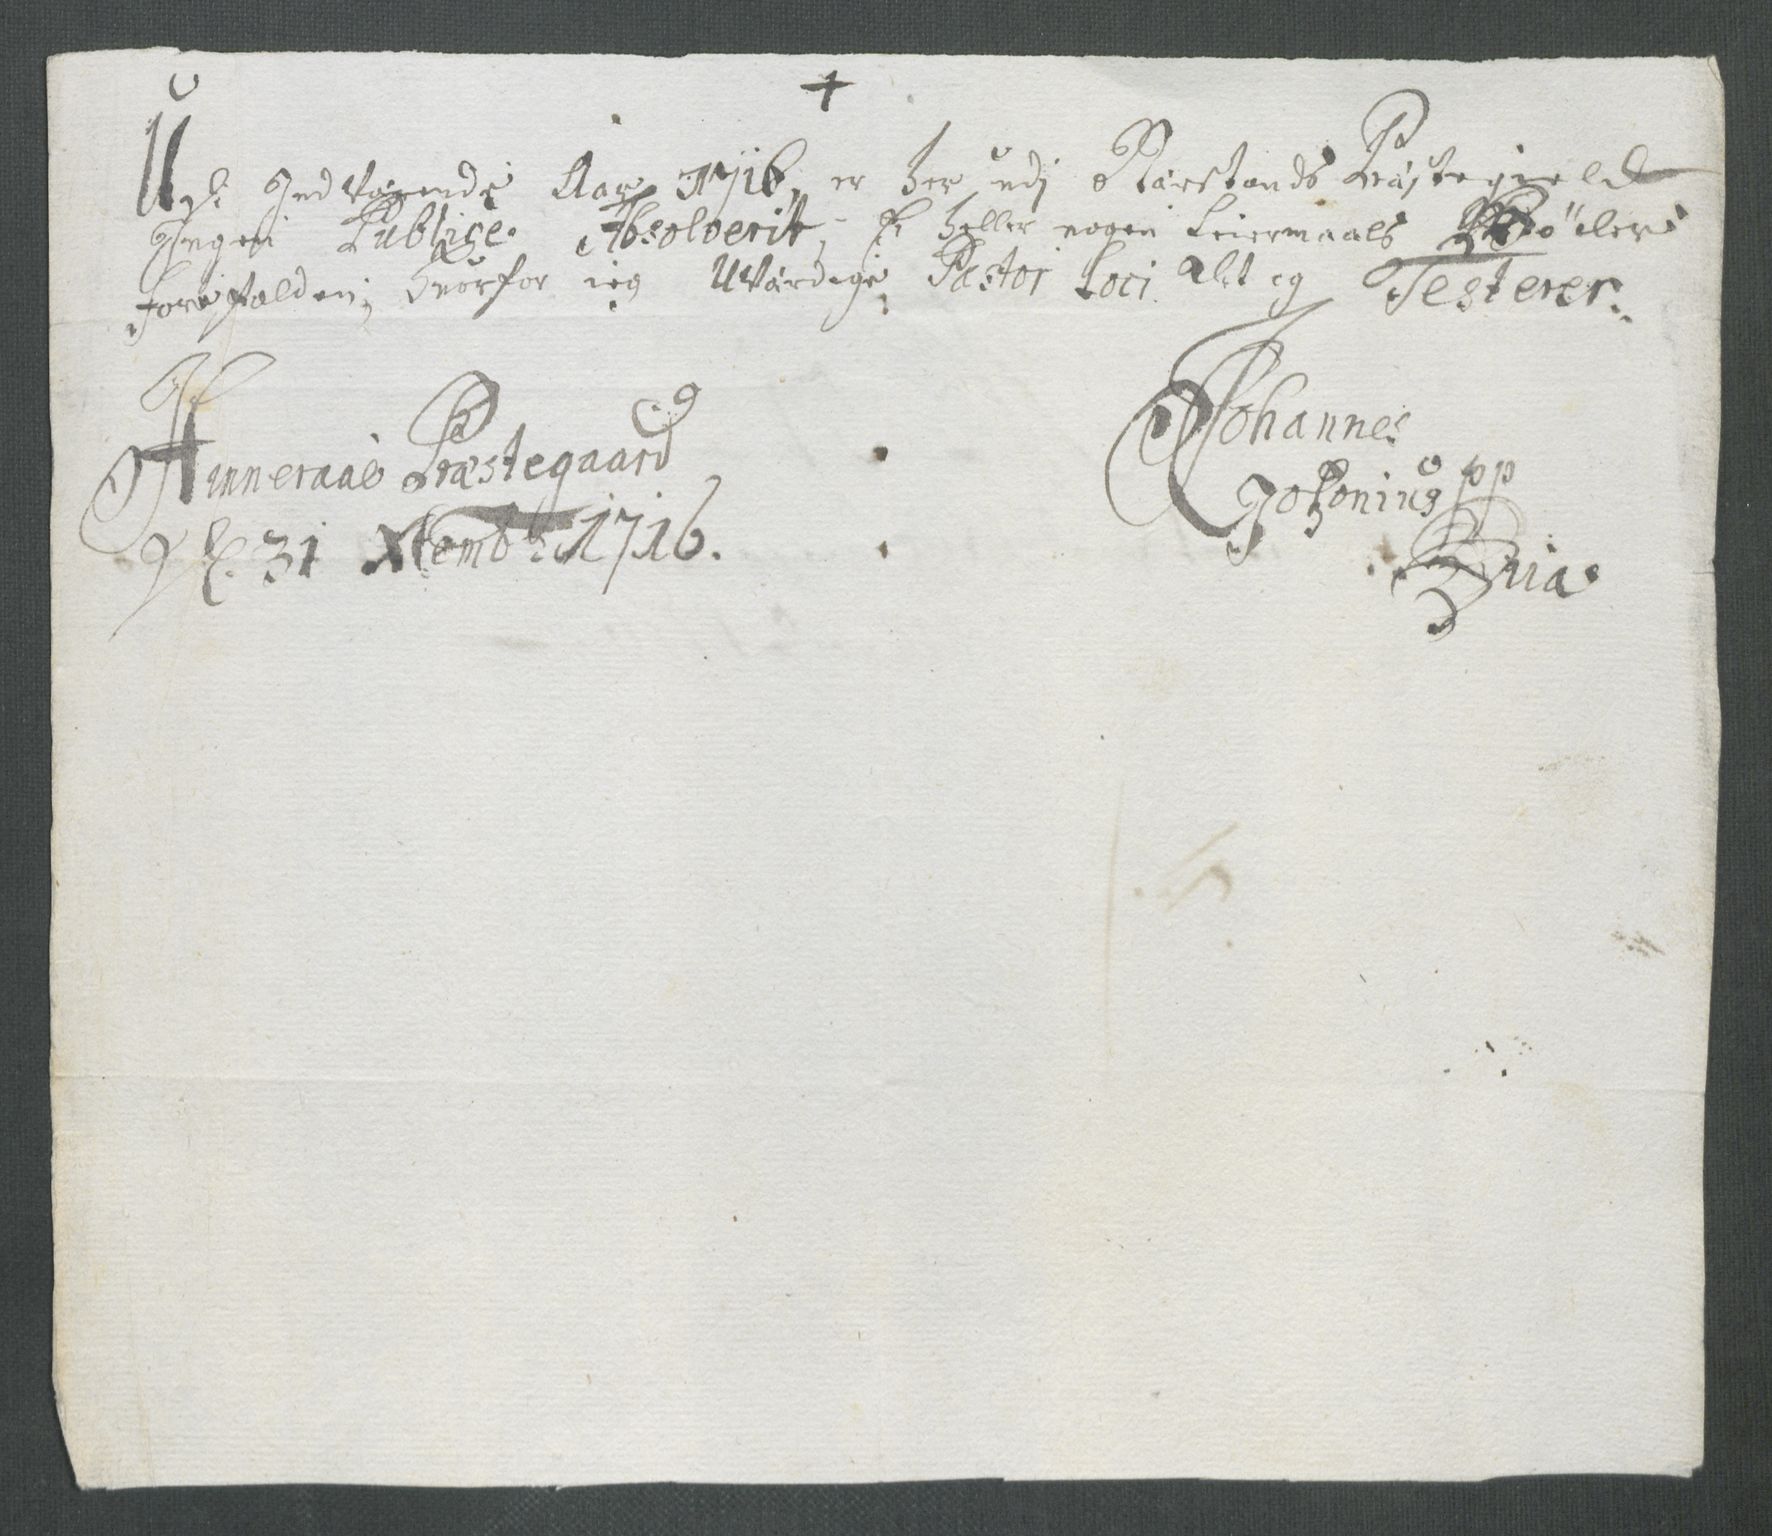 +
Udi Indværende Aar 1716, er her udj Nærstrands Præstegield
Ingen Publice Absolverit, Ej heller nogen Leiermaals Bøder
forefalden; hvorfor ieg Uværdige Pastor Loci Alt
Testerer.
Hinneraae Præstegaard
31 Xtemb: 1716.
Johannes